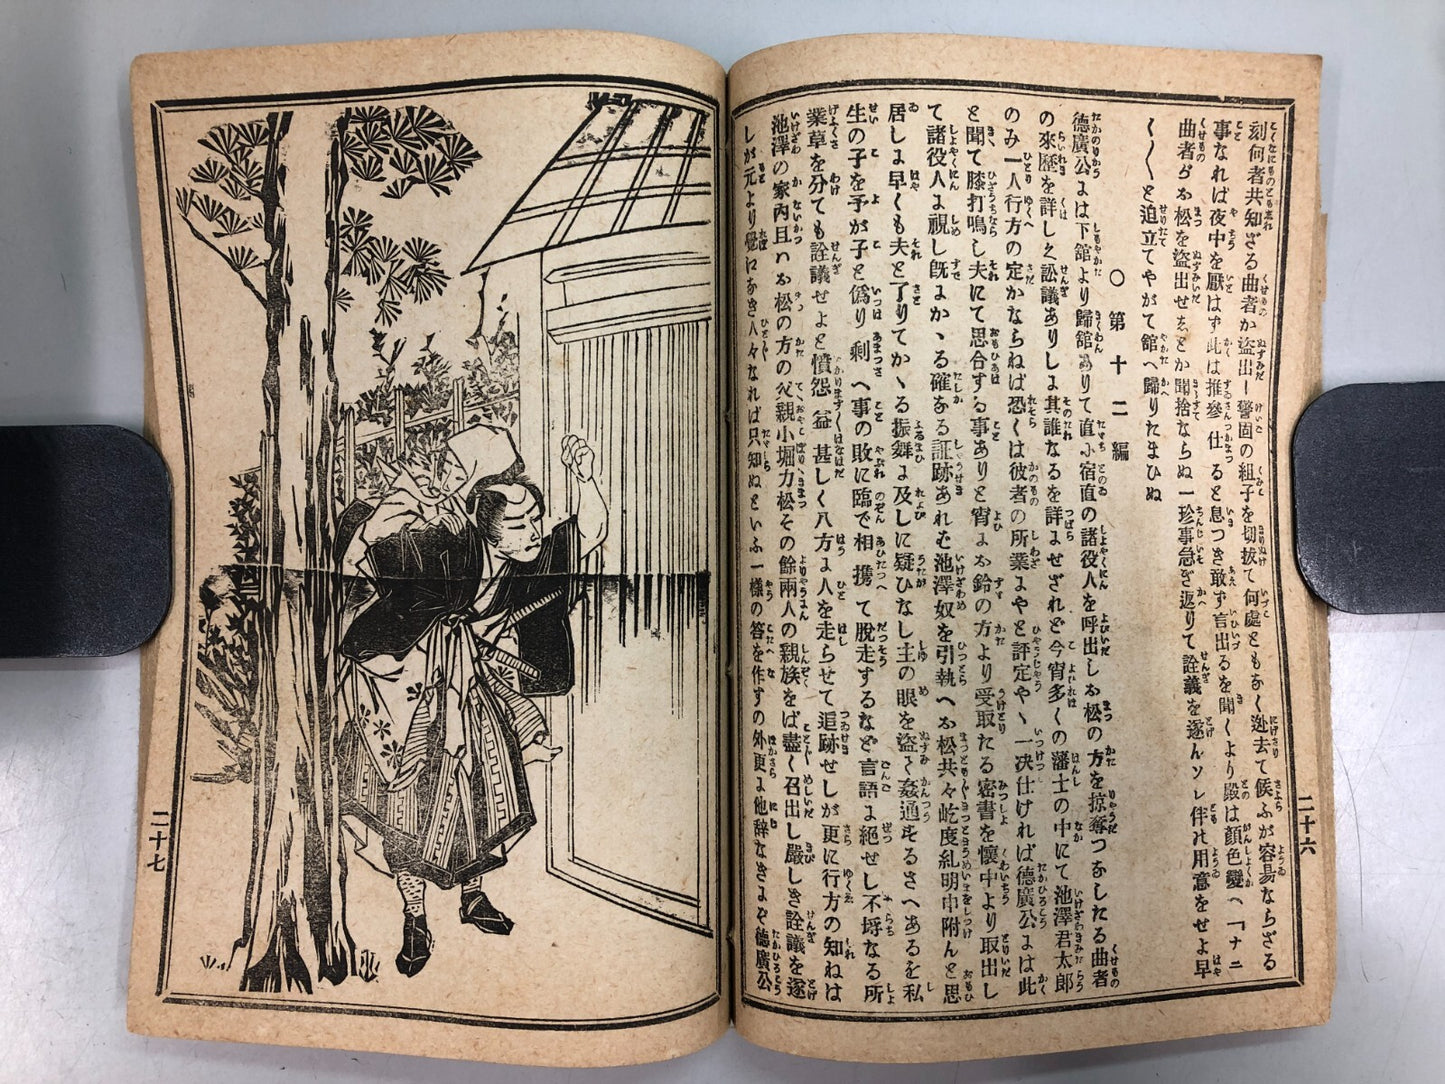 刻何者共知ざる曲者か盗出し警固の組子を切抜て何處ともなく迯去て候ふが容昜ならざる
事なれば夜中を厭はず此は推參仕ると息つき敢ず言出るを聞くより殿は顏色變へ「ナニ
曲者がお松を盗出せしとか聞捨ならぬ一珍事急ぎ返りて詮義を遂んソレ伴れ用意をせよ早
く〳〵と追立てやがて館へ歸りたまひぬ
○第十二編
德廣公には下館より歸館ありて直に宿直の諸役人を呼出しお松の方を掠奪つをしたる曲者
の來歷を詳しく訟議ありしに其誰なるを詳にせざれど今宵多くの藩士の中にて池澤君太郎
のみ一人行方の定かならねば恐くは彼者の所業にやと評定やゝ一决仕ければ德廣公には此
と聞て膝打鳴し夫にて思合する事ありと宵にお鈴の方より受取たる密書を懷中より取出し
て諸役人に視し既にかゝる確なる証跡あれば池澤奴を引執へお松共々屹度糺明申附んと思
居しに早くも夫と了りてかゝる振舞に及しに疑ひなし主の眼を盗く姦通せるさへあるを私
生の子を予が子と僞り剩へ事の敗に臨で相携て脫走するなど言語に絕せし不埒なる所
業草を分ても詮議せよと憤怨益甚しく八方に人を走らせて追跡せしが更に行方の知ねは
池澤の家內且ハお松の方の父親小堀力松その餘兩人の親族をば盡く召出し嚴しき詮議を遂
しが元より覺になき人々なれば只知ぬといふ一樣の答を作すの外更に他辞なきにぞ德廣公
二十六
二十七